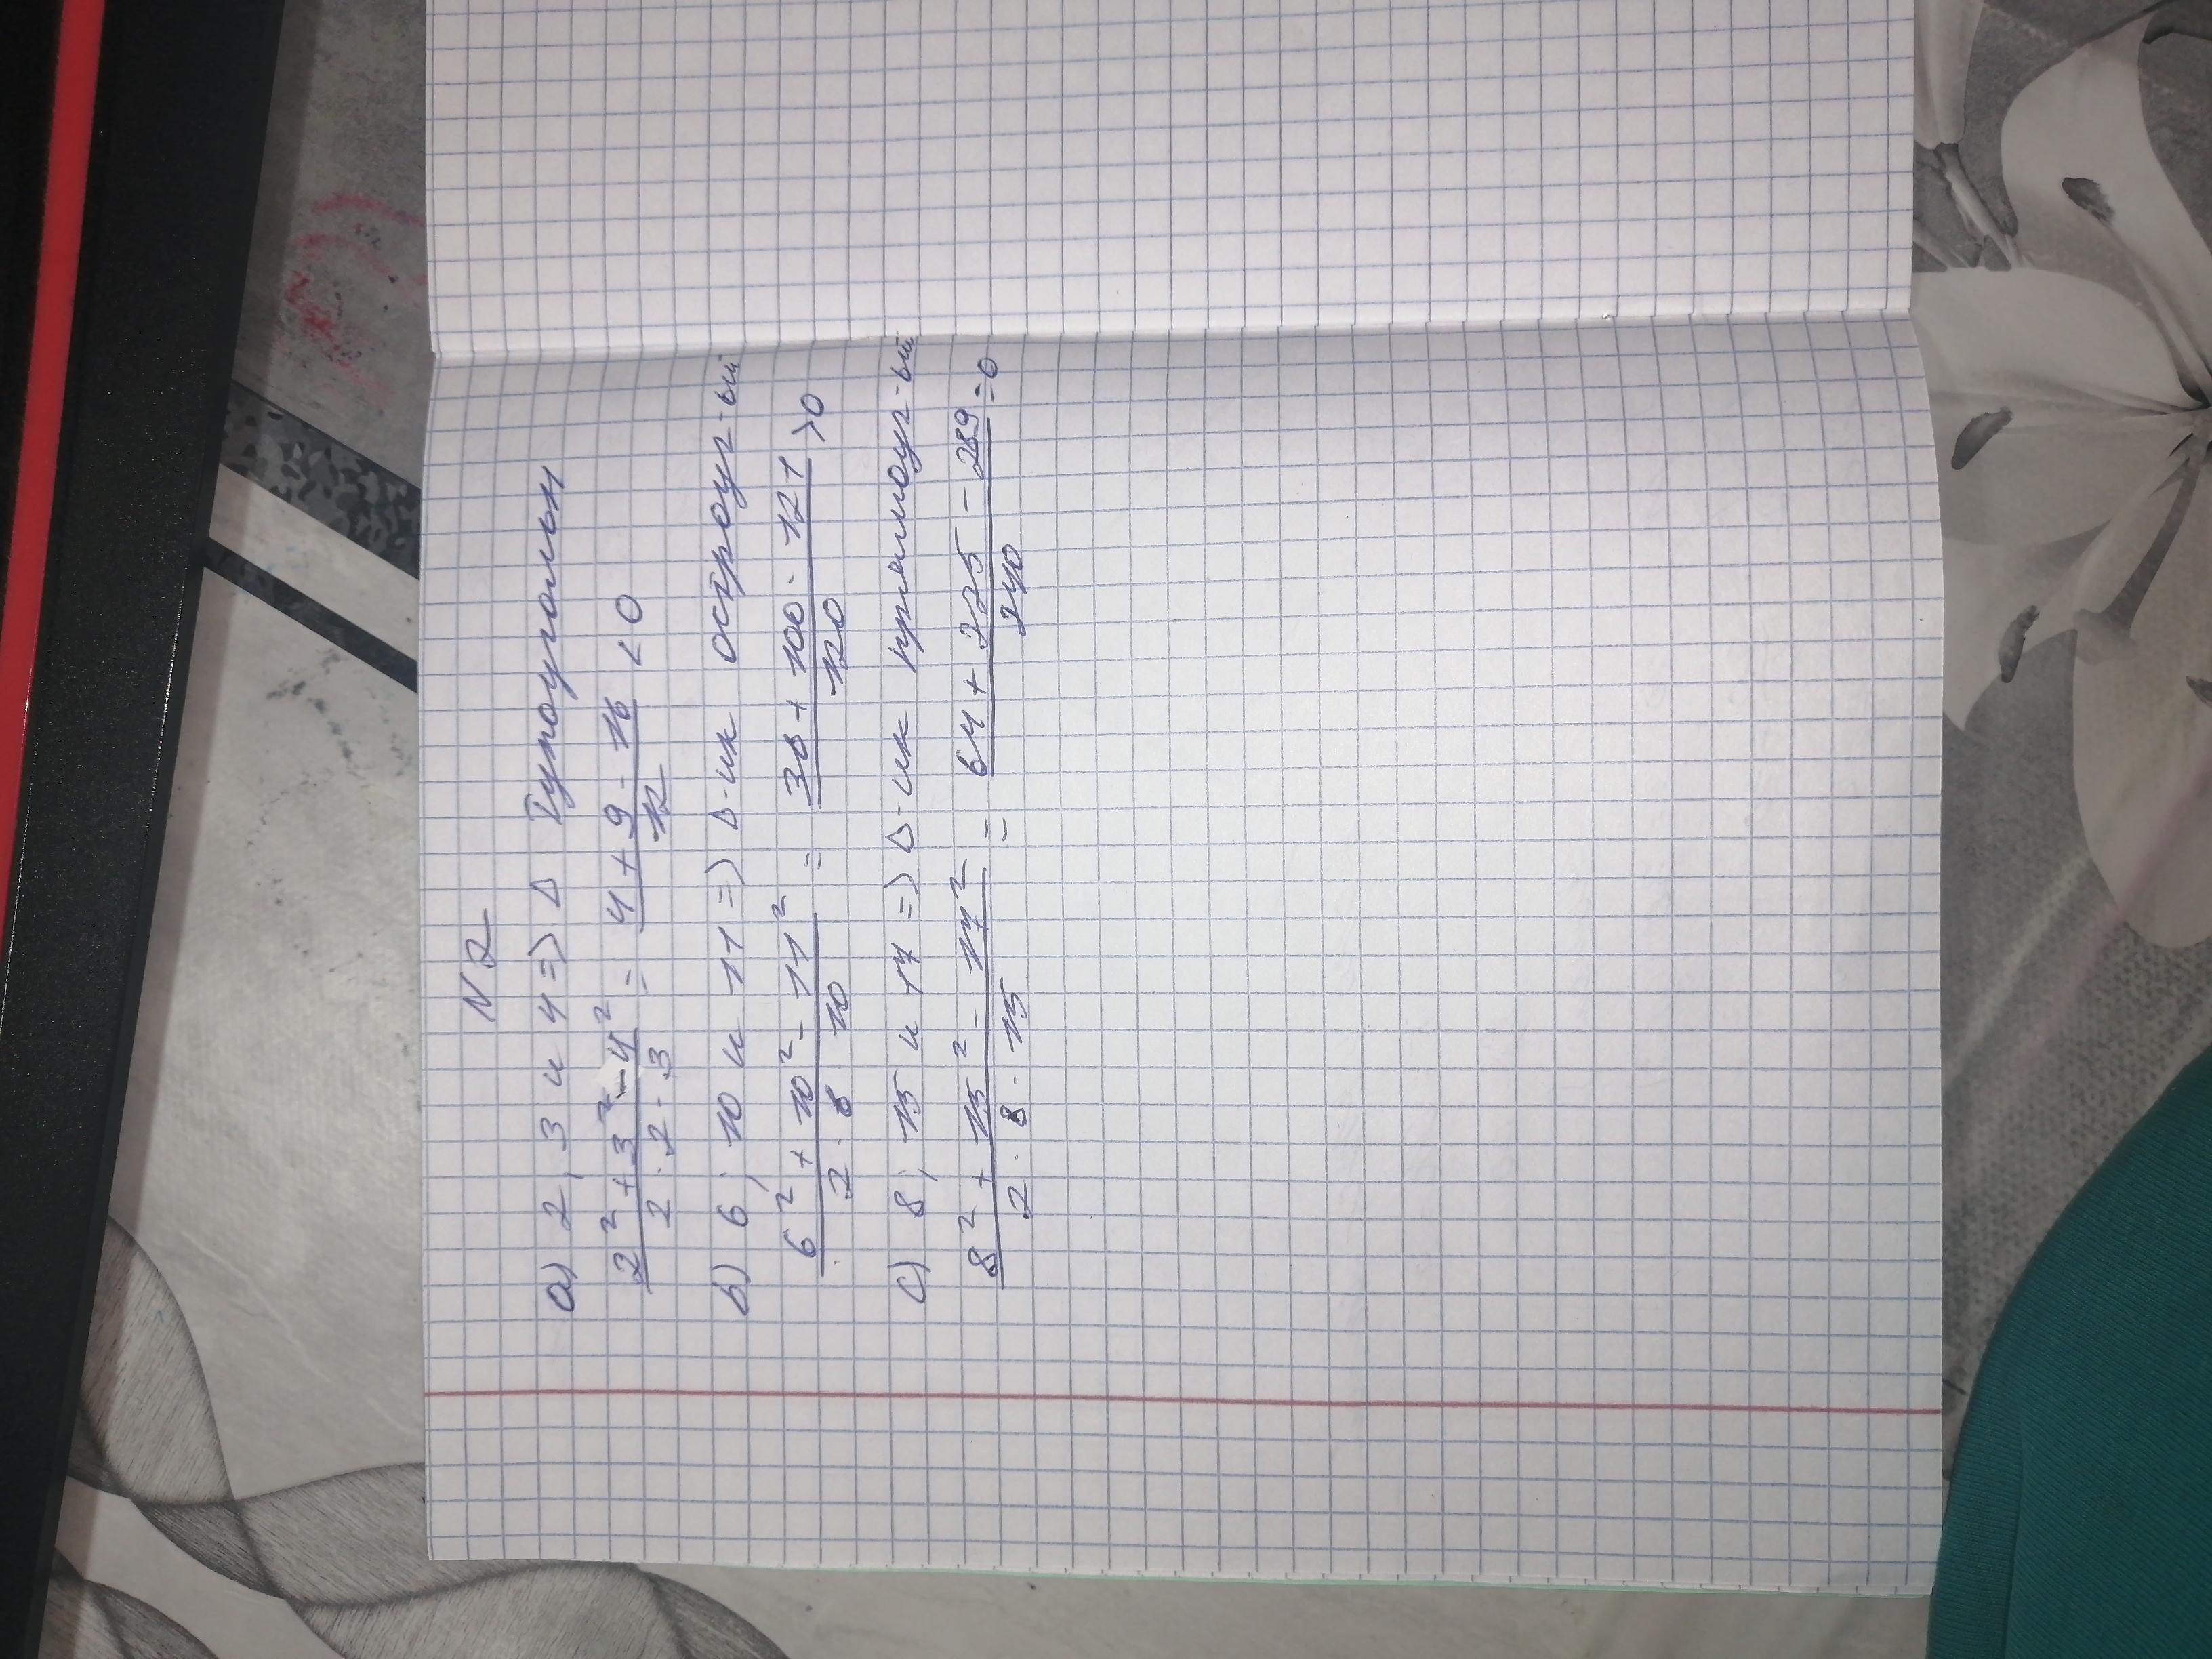 N2
a) 2, 3 и 4 => Δ Тупоугольн
(2² + 3² - 4²) / (2 · 2 · 3) = (4 + 9 - 16) / 12 < 0
b) 6; 10 и 11 => Δ-ик остроуг-ый
(6² + 10² - 11²) / (2 · 6 · 10) = (36 + 100 - 121) / 120 > 0
c) 8; 15 и 17 => Δ-ик прямоуг-ый
(8² + 15² - 17²) / (2 · 8 · 15) = (64 + 225 - 289) / 240 = 0